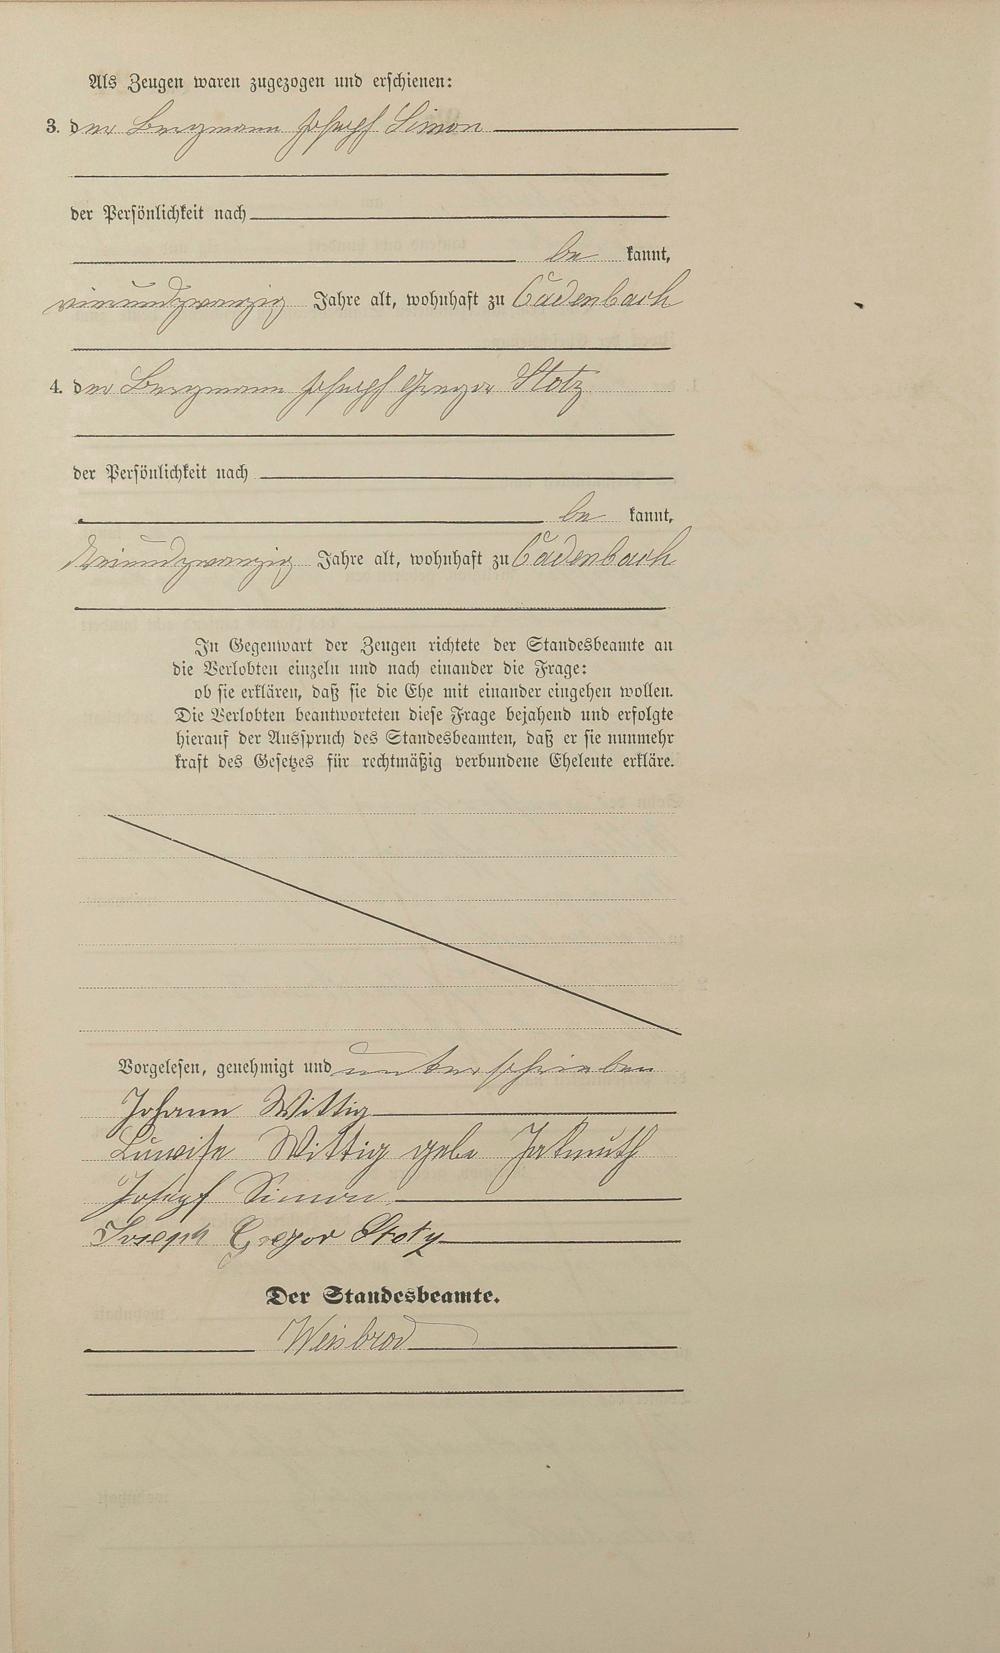 Als Zeugen waren zugezogen und erschienen:
3. der Bergmann Joseph Simon
der Persönlichkeit nach
be kannt,
vierundzwanzig Jahre alt, wohnhaft zu Cadenbach
4. der Bergmann Joseph Gregor Stotz
der Persönlichkeit nach
be kannt,
dreiundzwanzig Jahre alt, wohnhaft zu Cadenbach
In Gegenwart der Zeugen richtete der Standesbeamte an
die Verlobten einzeln und nach einander die Frage:
ob sie erklären, daß sie die Ehe mit einander eingehen wollen.
Die Verlobten beantworteten diese Frage bejahend und erfolgte
hierauf der Ausspruch des Standesbeamten, daß er sie nunmehr
kraft des Gesetzes für rechtmäßig verbundene Eheleute erkläre.
Vorgelesen, genehmigt und unterschrieben
Johann Wittig
Luwise Wittig gebe Jakmuth
Josepf Simon
Joseph Gregor Stotz
Der Standesbeamte.
Weisbrod